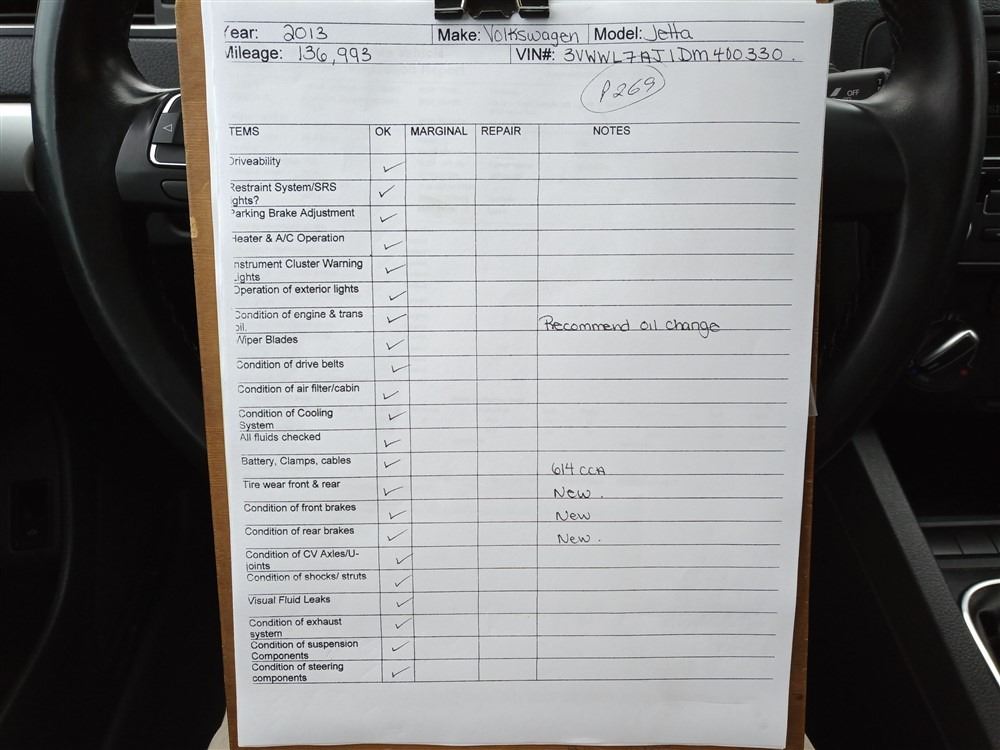 Year: 2013 Make: Volkswagen Model: Jetta
Mileage: 136,993 VIN#: 3VWWL7AJ1DM400330.
P269
OFF
TEMS OK MARGINAL REPAIR NOTES
Driveability ✓
Restraint System/SRS
ghts? ✓
Parking Brake Adjustment ✓
Heater & A/C Operation ✓
nstrument Cluster Warning
Lights ✓
Operation of exterior lights ✓
Condition of engine & trans
oil. ✓ Recommend oil change
Wiper Blades ✓
Condition of drive belts ✓
Condition of air filter/cabin ✓
Condition of Cooling
System ✓
All fluids checked ✓
Battery, Clamps, cables ✓ 614 CCA
Tire wear front & rear ✓ New.
Condition of front brakes ✓ New
Condition of rear brakes ✓ New.
Condition of CV Axles/U-
joints ✓
Condition of shocks/ struts ✓
Visual Fluid Leaks ✓
Condition of exhaust
system ✓
Condition of suspension
Components ✓
Condition of steering
components ✓